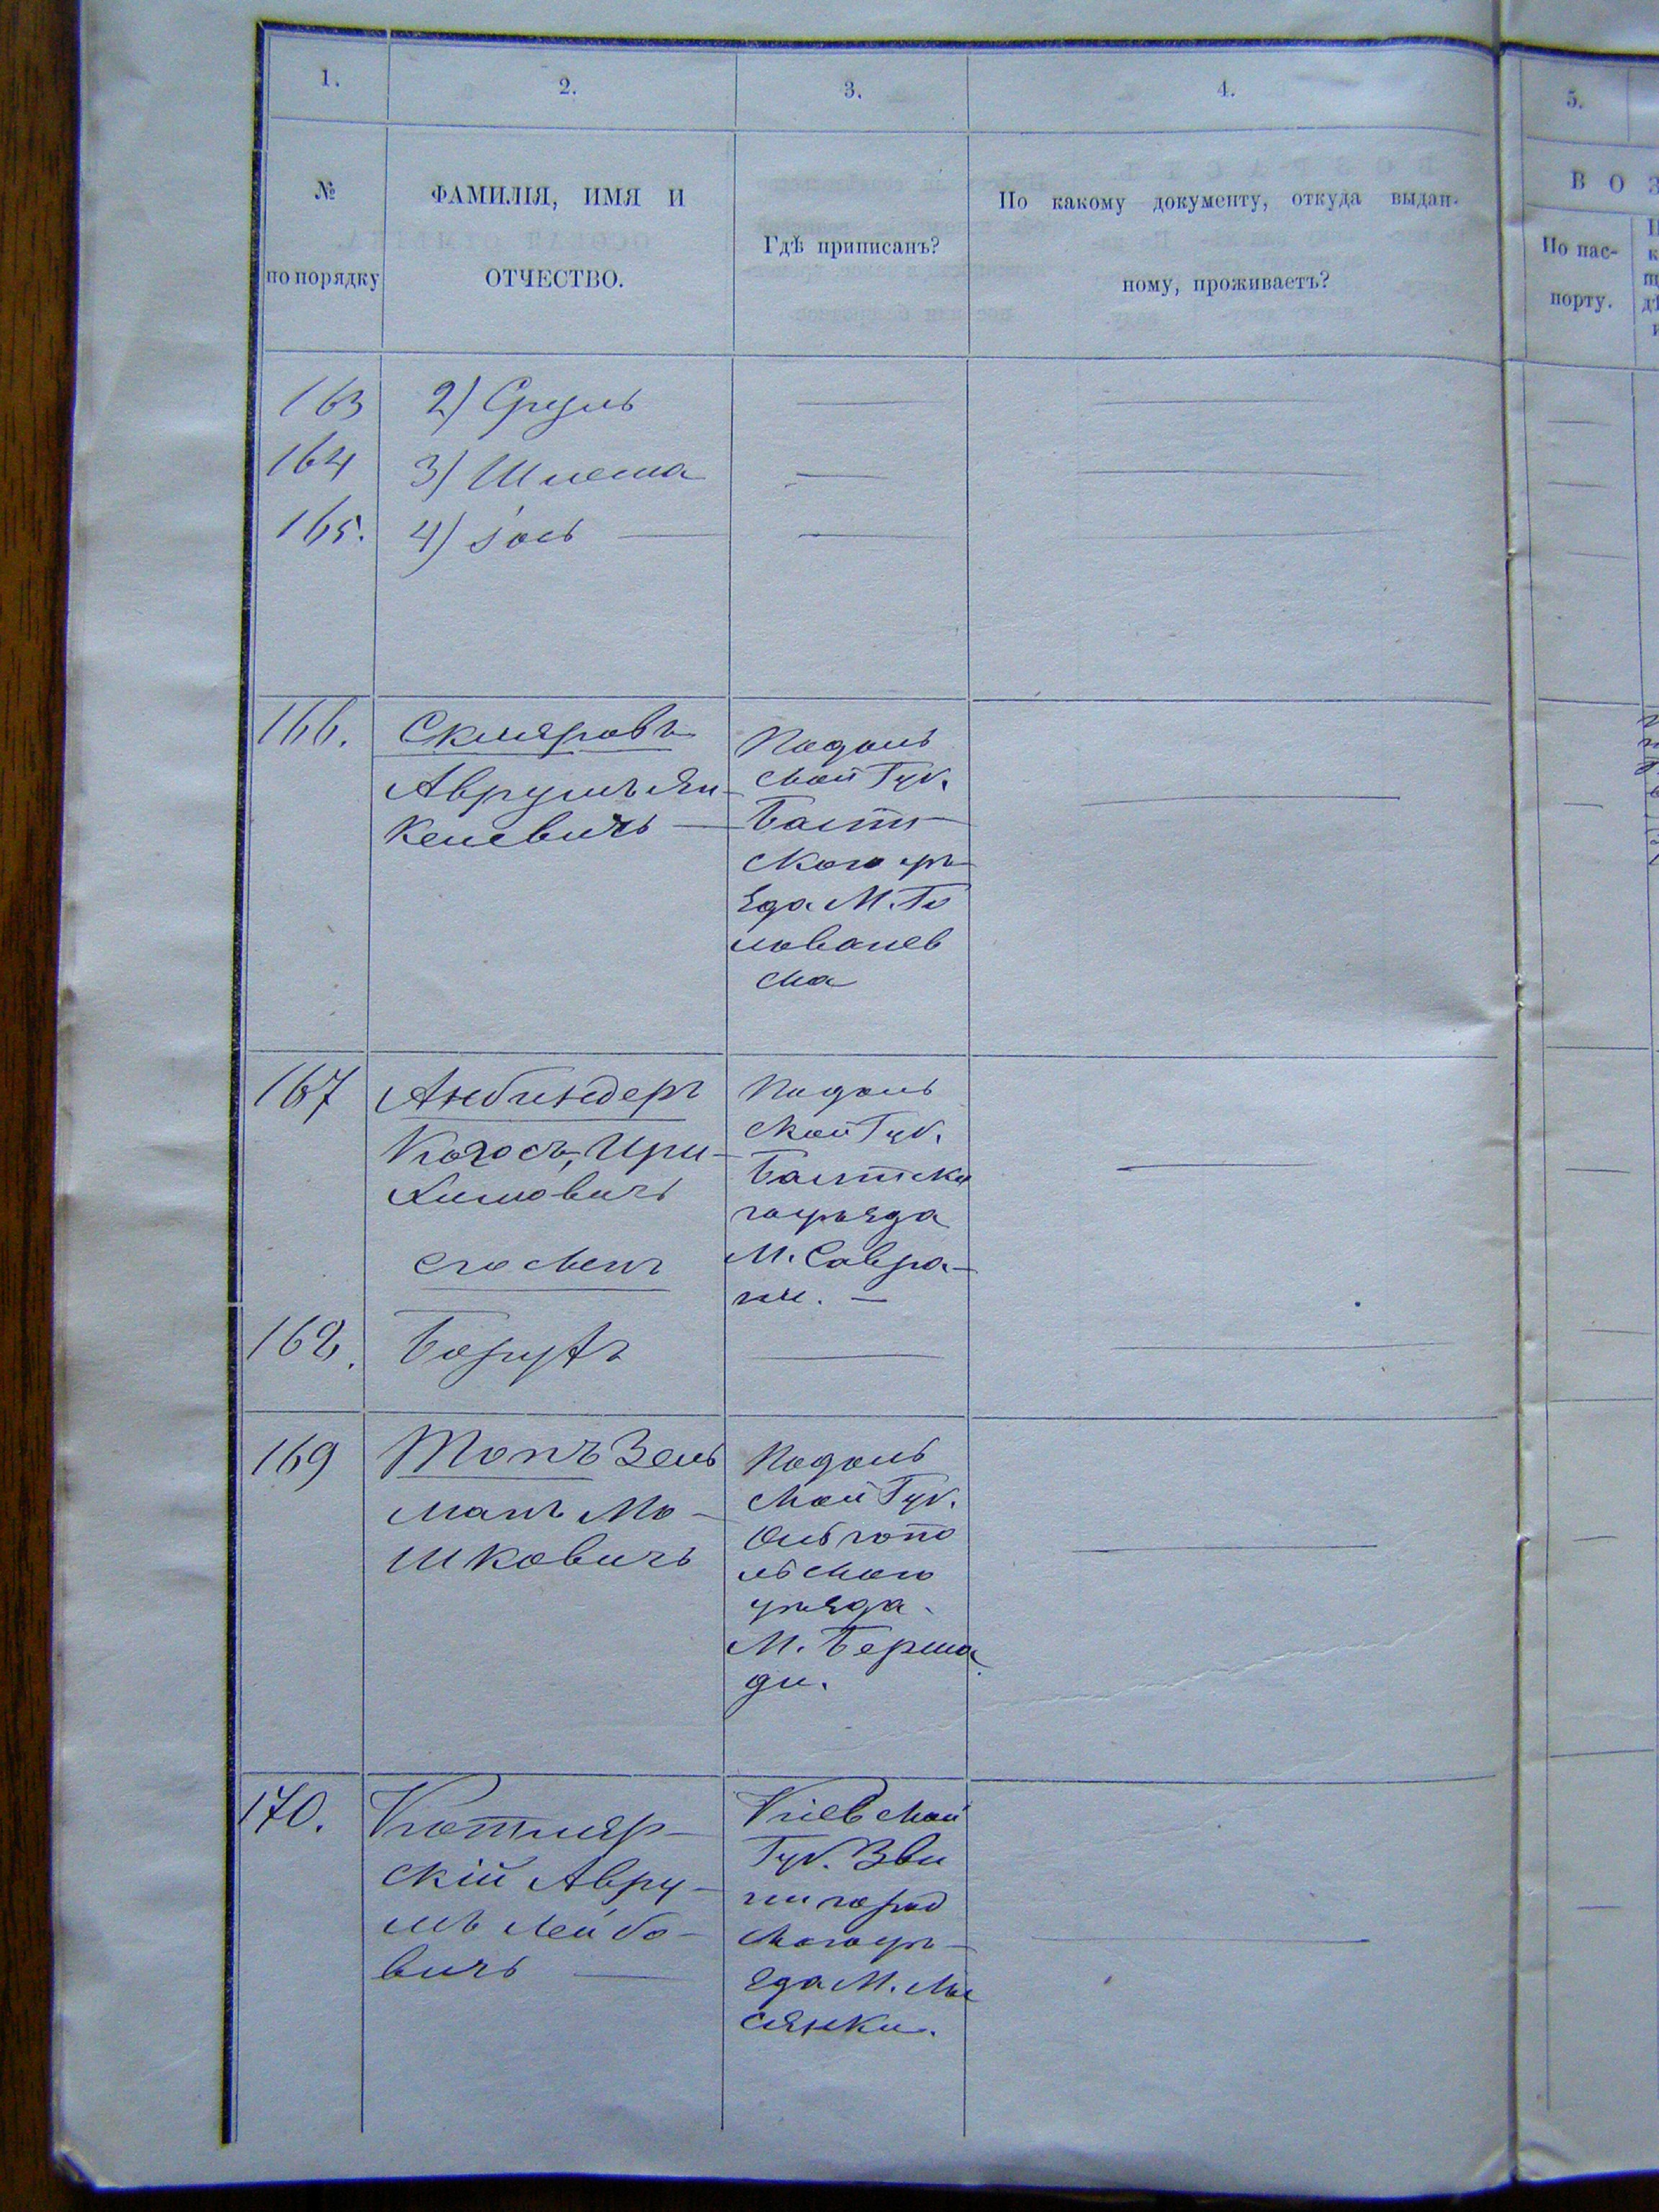 1.
2.
3.
4.
5.
№
по порядку
ФАМИЛІЯ, ИМЯ И
ОТЧЕСТВО.
Гдѣ приписанъ?
По какому документу, откуда выдан-
ному, проживаетъ?
В О З
По пас-
порту.
163 2) Сруль
164 3) Шлема
165. 4) Іось
166. Скляровъ
Аврумъ Ян-
келевичъ
Подоль
ской Губ.
Балт-
ского уѣ-
зда М. Го
лованев
ска
167 Анбиндеръ
Хи́мовичъ
его сынъ
Подоль
ской Губ.
Балтско
го уѣзда
М. Савра-
ни.
168. Борухъ
169 Топъ Зель
манъ Мо-
шковичъ
Подоль
ской Губ.
Ольгопо
льского
уѣзда.
М. Берша
ди.
170. Котляр-
скій Авру-
мъ Лейбо-
вичъ
Кіевской
Губ. Зве
нигород
ского уѣ-
зда М. Лы
сянки.